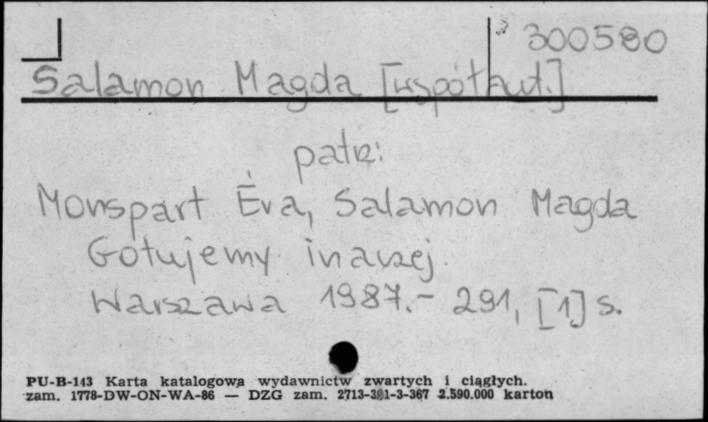 300580
Salamon Magda [współaut.]
patrz:
Monspart Éva, Salamon Magda
Gotujemy inaczej.
Warszawa 1987.- 291, [1] s.
PU-B-143 Karta katalogowa wydawnictw zwartych i ciągłych.
zam. 1778-DW-ON-WA-86 — DZG zam. 2713-381-3-367 2.590.000 karton